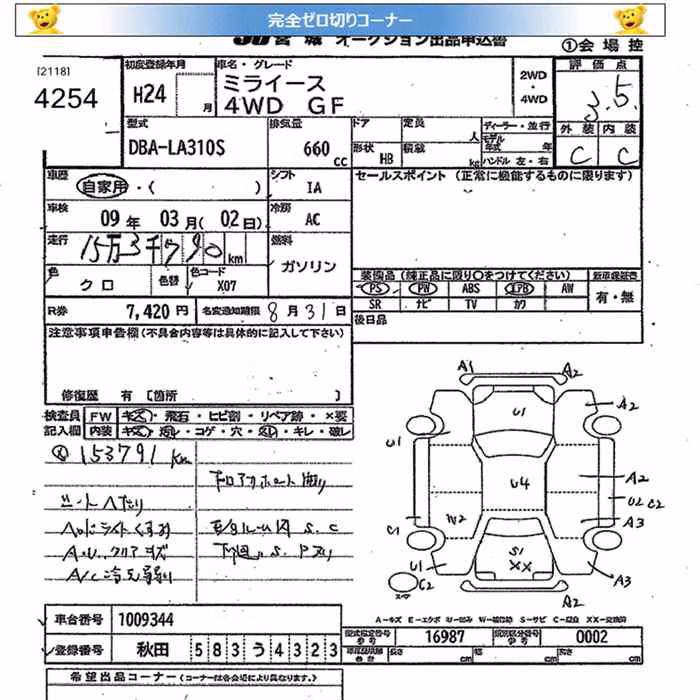 完全ゼロ切りコーナー
JU宮城 オークション出品申込書
①会場控
[2118]
4254
初度登録年月
H24 月
車名・グレード
ミライース
4WD GF
2WD
・
4WD
評価点
3.5
外装 内装
C C
型式
DBA-LA310S
排気量
660 cc
ドア 定員 人
形状 HB 積載 kg
ディーラー・並行
モデル年式 年
ハンドル 左・右
車歴
自家用・( )
シフト IA
セールスポイント (正常に機能するものに限ります)
車検
09年 03月(02日)
冷房 AC
走行
15万3千790 km
燃料
ガソリン
色
クロ
色替
色コード
X07
装備品 (純正品に限り○をつけてください)
新車保証書
PS PW ABS エアB AW
SR ナビ TV カワ
有・無
R券 7,420円
名変通知期限 8月31日
後日品
注意事項申告欄(不具合内容等は具体的に記入して下さい)
修復歴 有 [箇所 ]
検査員 FW キズ・飛石・ヒビ割・リペア跡・×要
記入欄 内装 キズ・汚れ・コゲ・穴・スレ・キレ・破レ
153791 km
シートヘたり
ヘッドライトくすみ
A.U.クリアキズ
A/C冷え弱り
S.C
下廻り S. Pアリ
A1 A2
U1 A2
U1
U4 A2
U2 C2
C1 W2 A3
U1 S1 XX A3
C2 A2
スペア
A-キズ E-エクボ U-凹み W-補修跡 S-サビ C-腐蝕 XX-交換済
車台番号 1009344
登録番号 秋田 583う4323
型式指定番号 16987
類別区分番号 0002
長さ cm 幅 cm 高さ cm
希望出品コーナー (コーナーは各会場により異なります。)